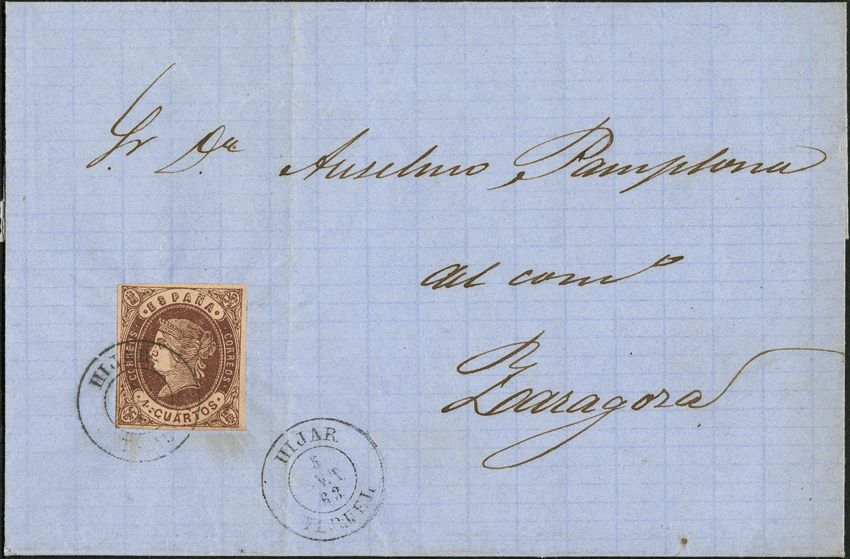 Sr. Dn Anselmo Pamplona
del com.º
Zaragoza
ESPAÑA
CORREOS
CORREOS
4 CUARTOS
HIJAR
HIJAR
5
63
TERUEL